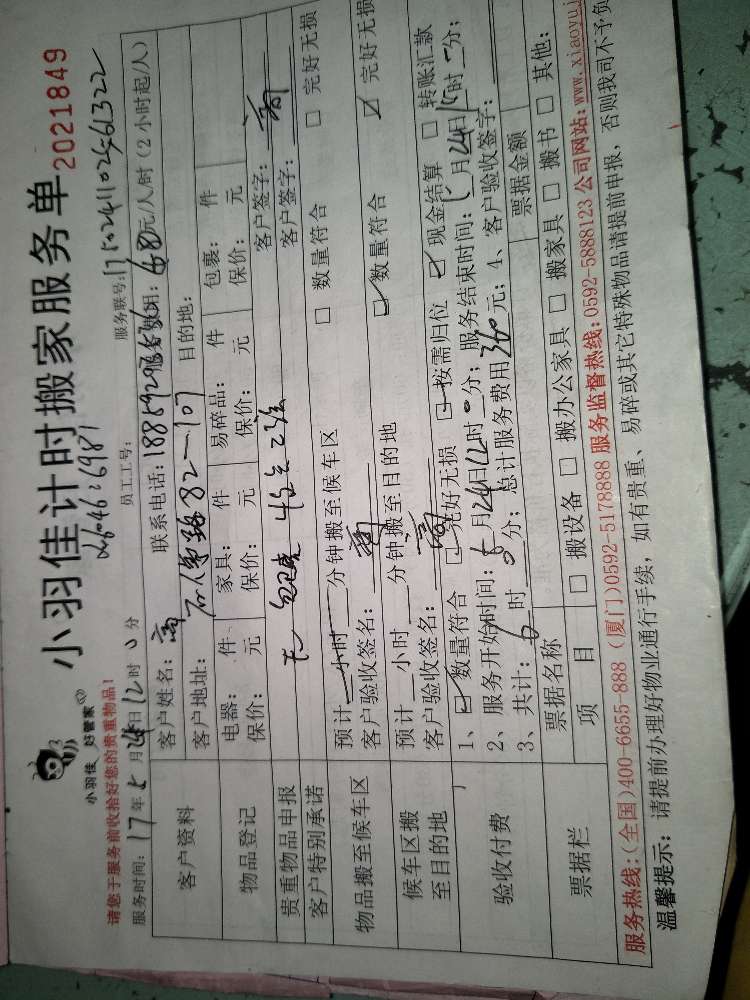 小羽佳计时搬家服务单
2021849
小羽佳 好管家
请您于服务前收拾好您的贵重物品!
服务时间: 17年5月24日12时0分 员工工号: 服务联号:
客户资料 客户姓名: 高 联系电话: 服务费用: 60元/人/时(2小时起/人)
客户地址: 82-107 目的地:
物品登记 电器: 件 家具: 件 易碎品: 件 包裹: 件
保价: 元 保价: 元 保价: 元 保价: 元
贵重物品申报 无 客户签字:
客户特别承诺 客户签字:
物品搬至候车区 预计 小时 分钟搬至候车区 □ 数量符合 □ 完好无损
客户验收签名:
候车区搬至目的地 预计 小时 分钟搬至目的地 ☑ 数量符合 ☑ 完好无损
客户验收签名:
验收付费 1、☑ 数量符合 ☑ 完好无损 ☑ 按需归位 ☑ 现金结算 □ 转账汇款
2、服务开始时间: 5月24日12时0分; 服务结束时间: 5月24日15时 分;
3、共计: 6时0分; 总计服务费用360元; 4、客户验收签字:
票据栏 票据名称 票据金额
项目 □ 搬设备 □ 搬办公家具 □ 搬家具 □ 搬书 □ 其他:
服务热线:(全国)400-6655-888 (厦门)0592-5178888 服务监督热线:0592-5888123 公司网站:www.xiaoyuj
温馨提示: 请提前办理好物业通行手续, 如有贵重、易碎或其它特殊物品请提前申报, 否则我司不予负